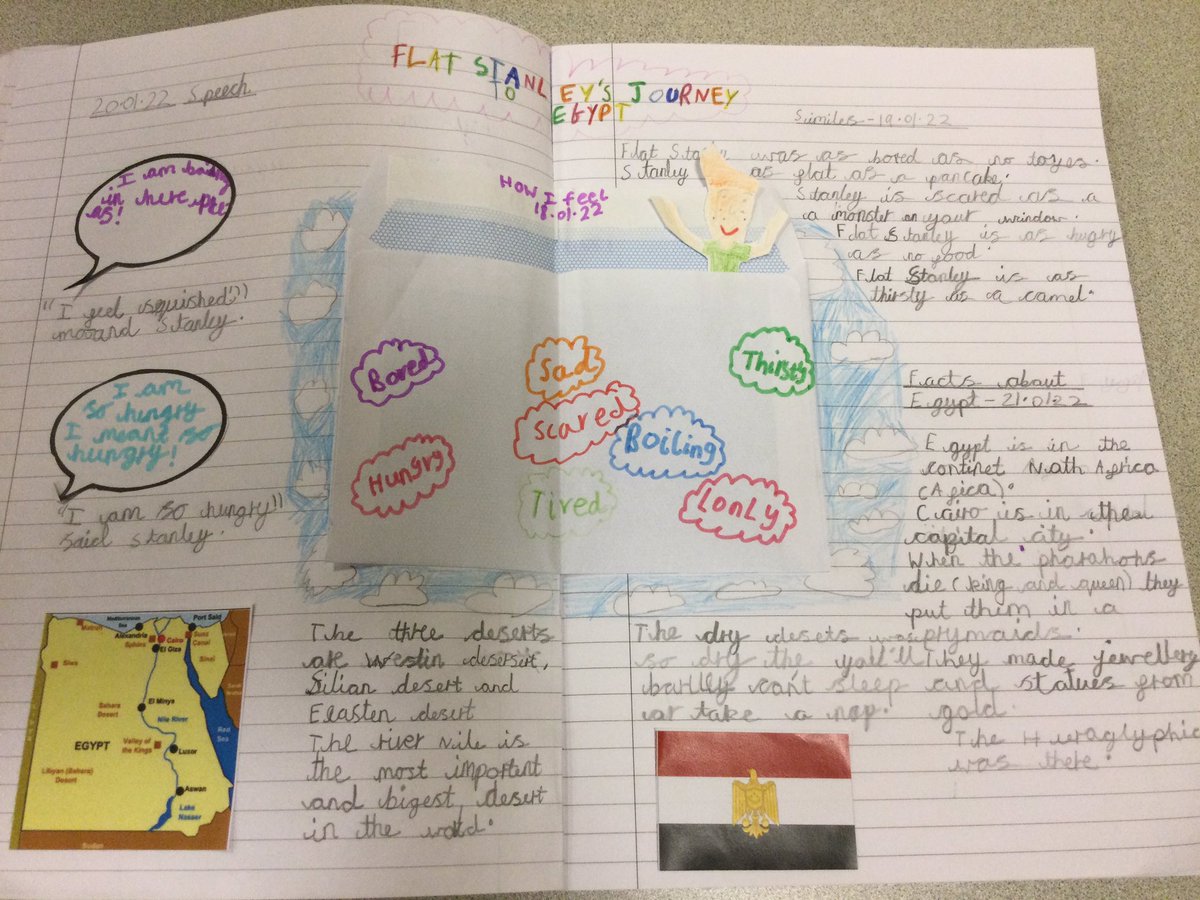 FLAT STANLEY'S JOURNEY
TO EGYPT
20.01.22 Speech
I am
in here
"I feel squished"
Stanley.
I am
so hungry
I meant so
hungry!
"I am so hungry"
said Stanley.
HOW I feel
18.01.22
Bored
Sad
Thirsty
Scared
Boiling
Hungry
Tired
LonLy
Similes - 19.01.22
Flat Stanley was as bored as no toyes.
Stanley as flat as a pancake.
Stanley is scared as a
a monster on your window.
Flat Stanley is as hugry
as no food
Flat Stanley is as
thirsty as a camel.
Facts about
Egypt - 21.01.22
Egypt is in the
continet Noth Africa
(Africa).
Cairo is in the
capital city.
When the pharahohs
die (king and queen) they
put them in a
prymaids.
They made jewellery
and statues from
gold.
The Hiuraglyphic
was there.
Mediterranean
Sea
Port Said
Matruh
Alexandria
Cairo
Sphere
Suez
Canal
El Giza
Siwa
Sinai
El Minya
Sahara
Desert
Nile River
EGYPT
Valley of
the Kings
Luxor
Red
Sea
Libyan (Sahara)
Desert
Aswan
Lake
Nasser
Sudan
The three deserts
are westin desersirt,
Silian desert and
Elasten desert
The river Nile is
the most important
and bigest desert
in the world.
The dry desets was
so dry the yall'll
barlly can't sleep
or take a nap.